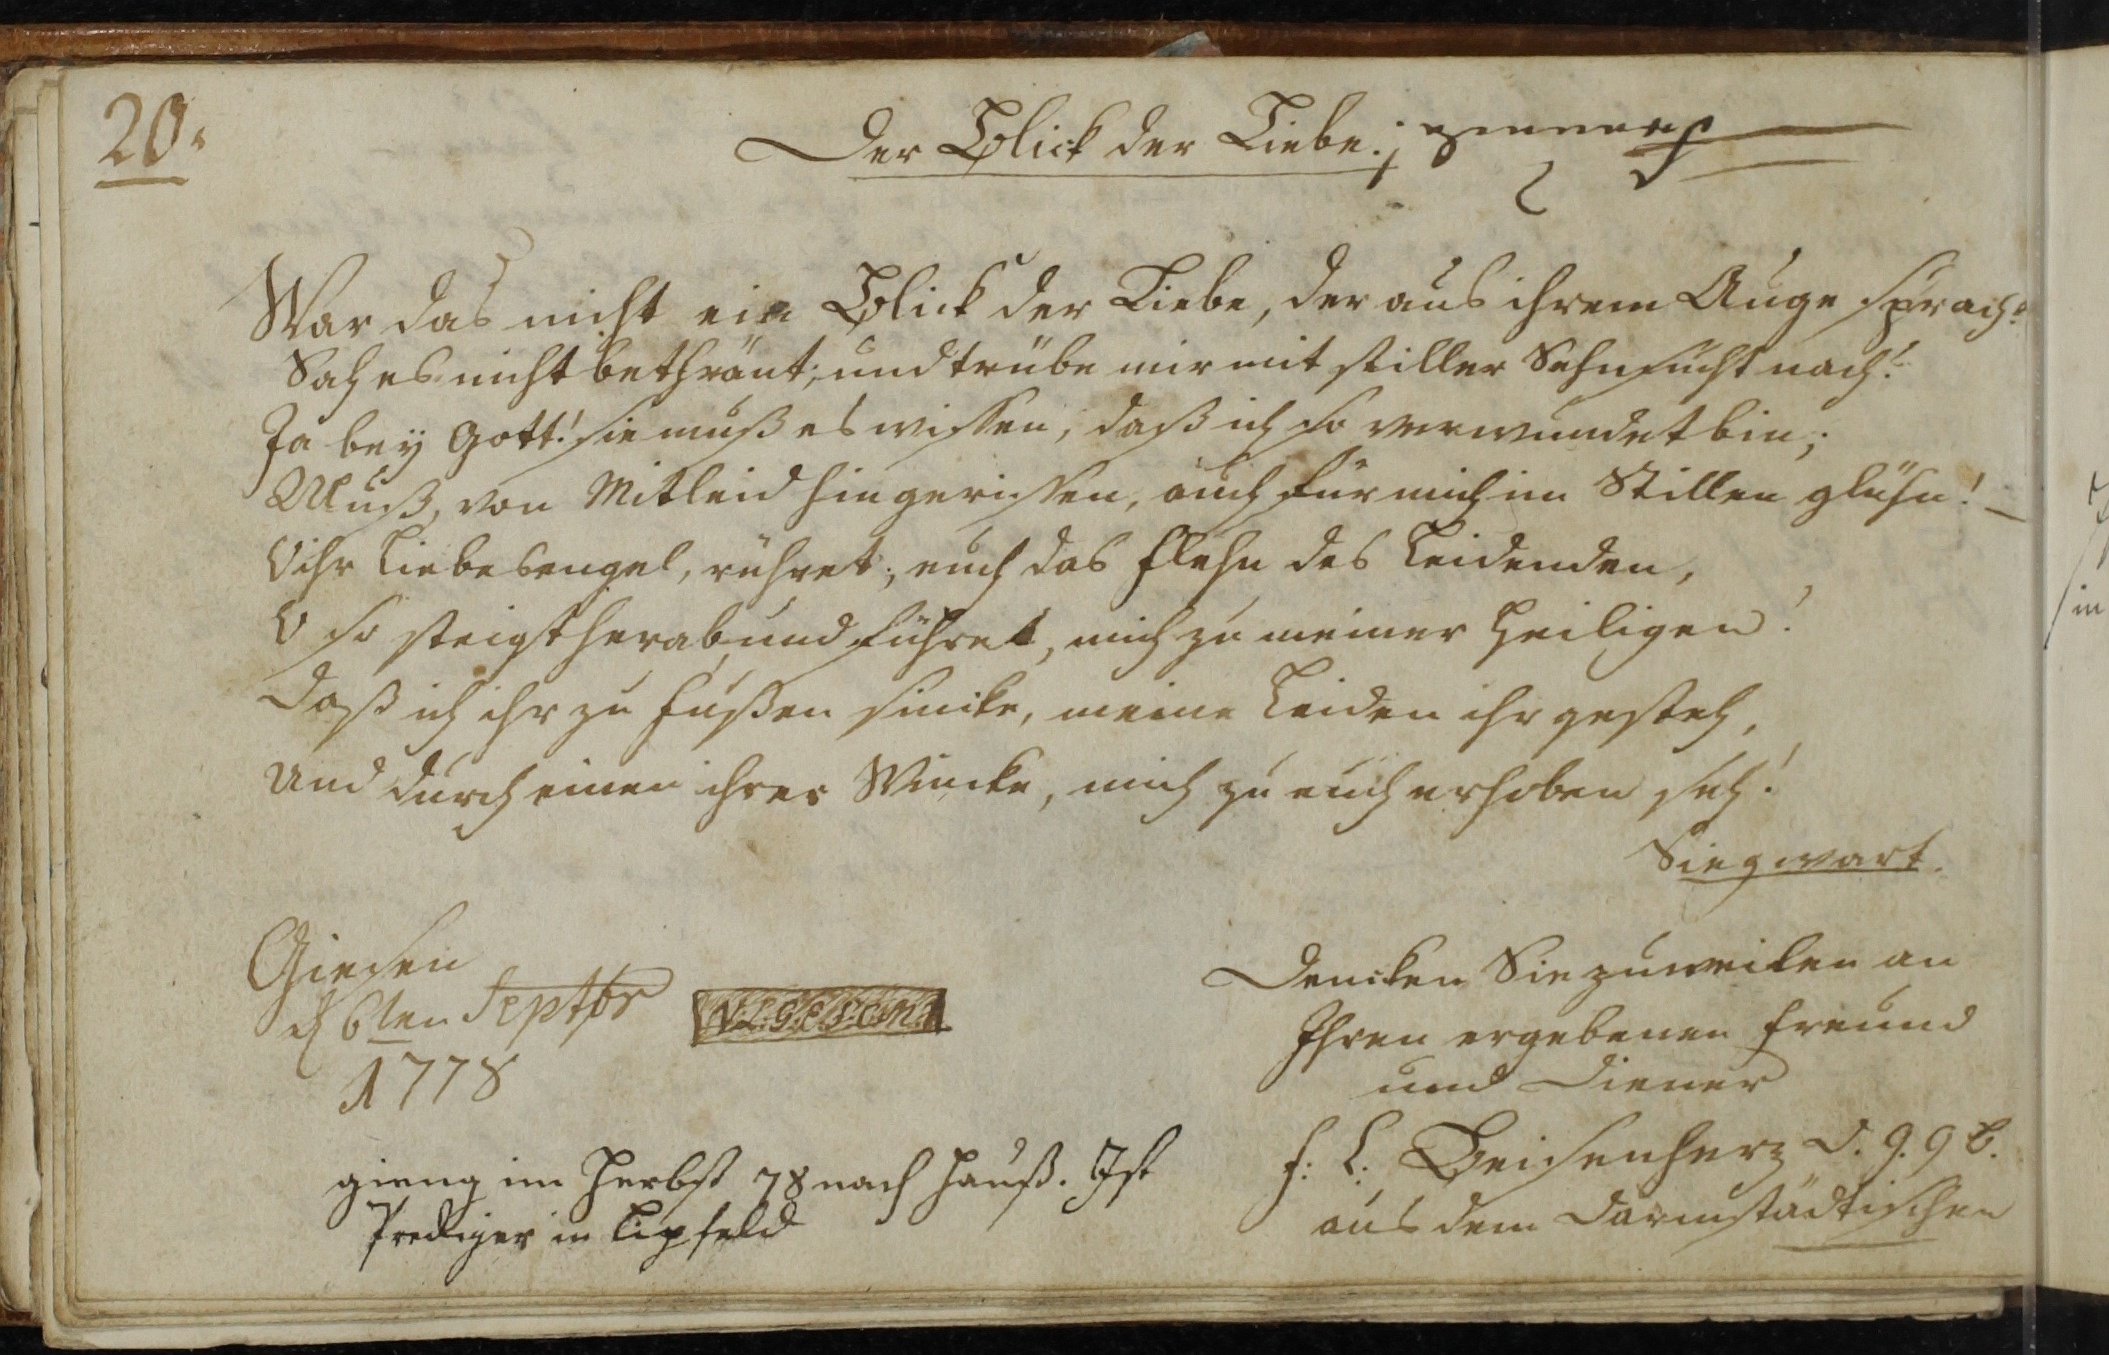 20.
Der Blick der Liebe.
War das nicht ein Blick der Liebe, der aus ihrem Auge sprach?
Sah es nicht bethränt; und trübe mir mit stiller Sehnsucht nach!
Ja bey Gott! sie muß es wissen, daß ich so verwundet bin;
Muß, von Mitleid hingerissen, auch für mich im Stillen glühn! —
O ihr Liebesengel, rühret; euch das Flehn des Leidenden,
O so steigt herab und führet, mich zu meiner Heiligen!
Daß ich ihr zu Füßen sincke, meine Leiden ihr gesteh,
Und durch einen ihrer Wincke, mich zu euch erhoben seh!
Siegwart.
Giesen
d 6ten Septbr
1778
Dencken Sie zuweilen an
Ihren ergebenen Freund
und Diener
F: L: Beisenherz d. g. g b.
aus dem Darmstädtischen
gieng im Herbst 78 nach Hauß. Ist
Prediger in